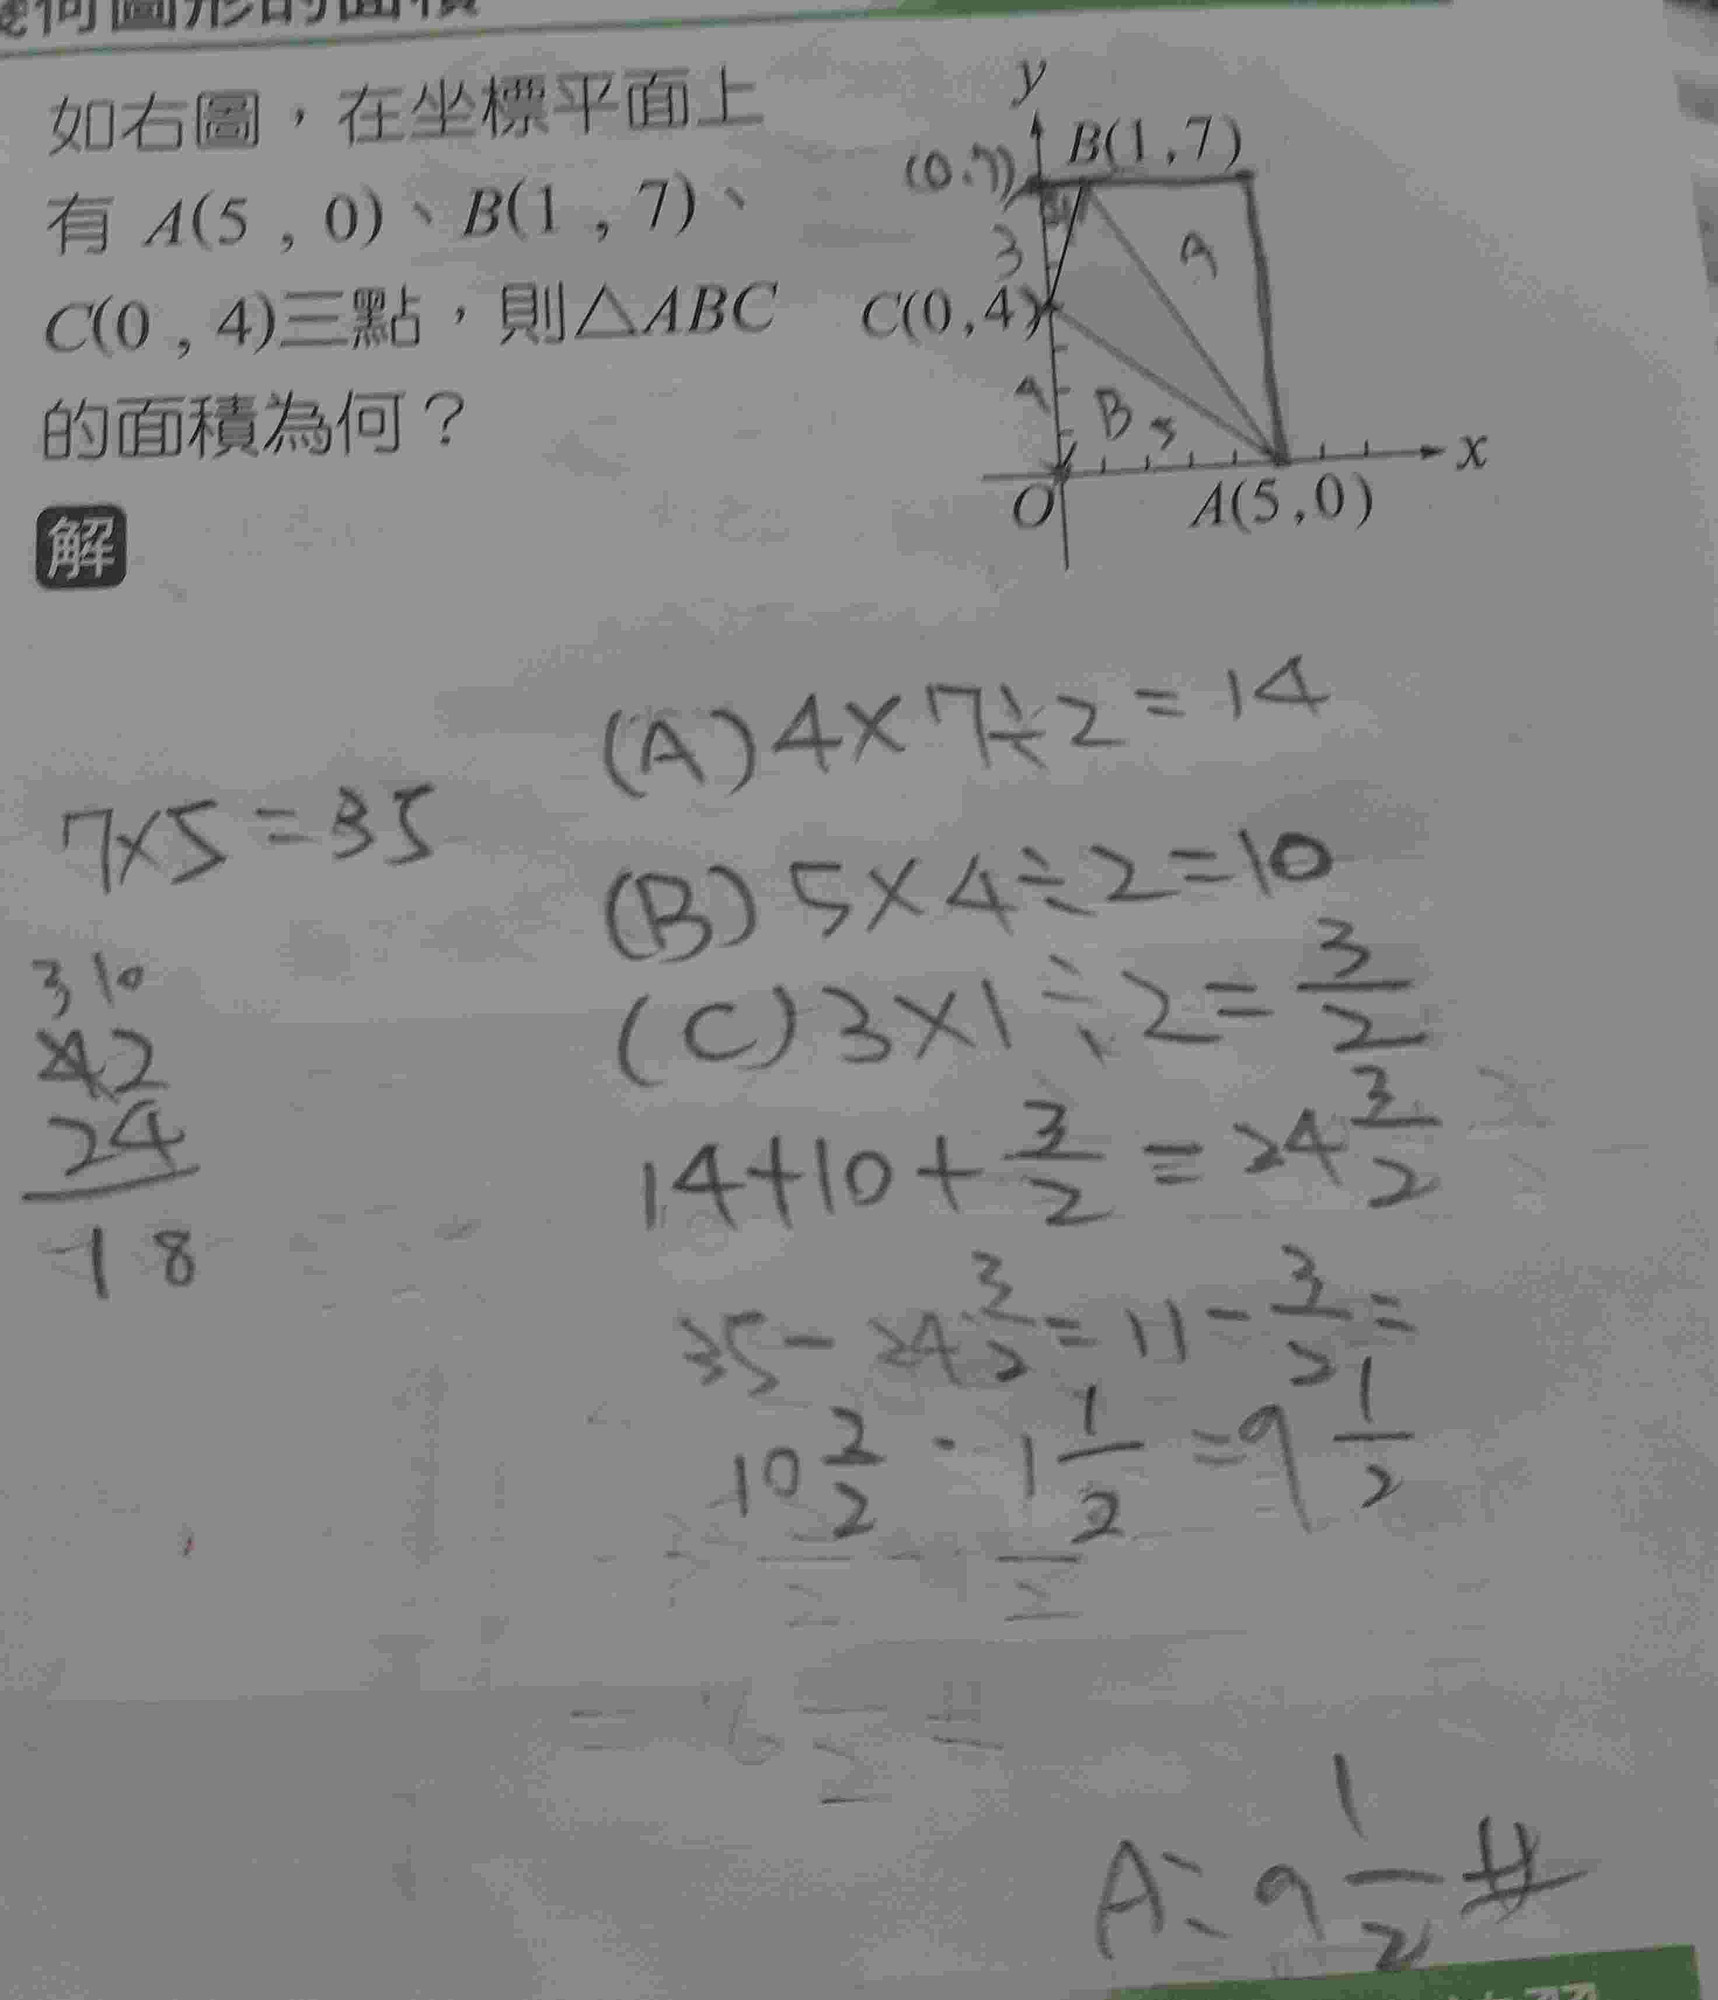 幾何圖形的面積
如右圖,在坐標平面上
有 A(5 , 0)、B(1 , 7)、
C(0 , 4)三點,則△ABC
的面積為何?
解
y
(0.7) B(1,7)
3 A
C(0,4)
4 B 5
x
O A(5,0)
(A) 4×7÷2=14
7×5=35
(B) 5×4÷2=10
(C) 3×1÷2=3/2
3 10
42
24
18
14+10+3/2=24 3/2
35-24 3/2=11-3/2=
10 2/2-1 1/2=9 1/2
A:9 1/2 #